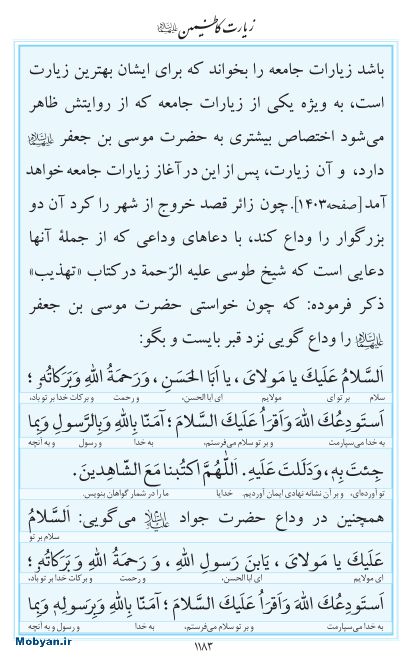 زیارت کاظمین علیهما السلام
باشد زیارات جامعه را بخواند که برای ایشان بهترین زیارت
است، به ویژه یکی از زیارات جامعه که از روایتش ظاهر
می‌شود اختصاص بیشتری به حضرت موسی بن جعفر علیهما السلام
دارد، و آن زیارت، پس از این در آغاز زیارات جامعه خواهد
آمد [صفحه۱۴۰۳]. چون زائر قصد خروج از شهر را کرد آن دو
بزرگوار را وداع کند، با دعاهای وداعی که از جملهٔ آنها
دعایی است که شیخ طوسی علیه الرّحمة در کتاب «تهذیب»
ذکر فرموده: که چون خواستی حضرت موسی بن جعفر
علیهما السلام را وداع گویی نزد قبر بایست و بگو:
اَلسَّلامُ عَلَیكَ یا مَولایَ ، یا اَبَا الحَسَنِ ، وَ رَحمَةُ اللهِ وَبَرَکاتُهُ ؛
سلام بر تو ای مولایم ای ابا الحسن، و رحمت و برکات خدا بر تو باد،
اَستَودِعُكَ اللهَ وَاَقرَاُ عَلَیكَ السَّلامَ ؛ آمَنّا بِاللهِ وَبِالرَّسولِ وَبِما
به خدا می‌سپارمت و بر تو سلام می‌فرستم، به خدا و رسول و به آنچه
جِئتَ بِهِ، وَدَلَلتَ عَلَیهِ. اَللّهُمَّ اکتُبنا مَعَ الشّاهِدینَ.
تو آورده‌ای، و بر آن نشانه نهادی ایمان آوردیم. خدایا ما را در شمار گواهان بنویس.
همچنین در وداع حضرت جواد علیه السلام می‌گویی: اَلسَّلامُ
سلام بر تو
عَلَیكَ یا مَولایَ ، یَابنَ رَسولِ اللهِ ، وَ رَحمَةُ اللهِ وَ بَرَکاتُهُ ؛
ای مولایم ای ابا الحسن، و رحمت و برکات خدا بر تو باد،
اَستَودِعُكَ اللهَ وَاَقرَاُ عَلَیكَ السَّلامَ ؛ آمَنّا بِاللهِ وَبِرَسولِهِ وَبِما
به خدا می‌سپارمت و بر تو سلام می‌فرستم، به خدا و رسول و به آنچه
۱۱۸۳
Mobyan.ir